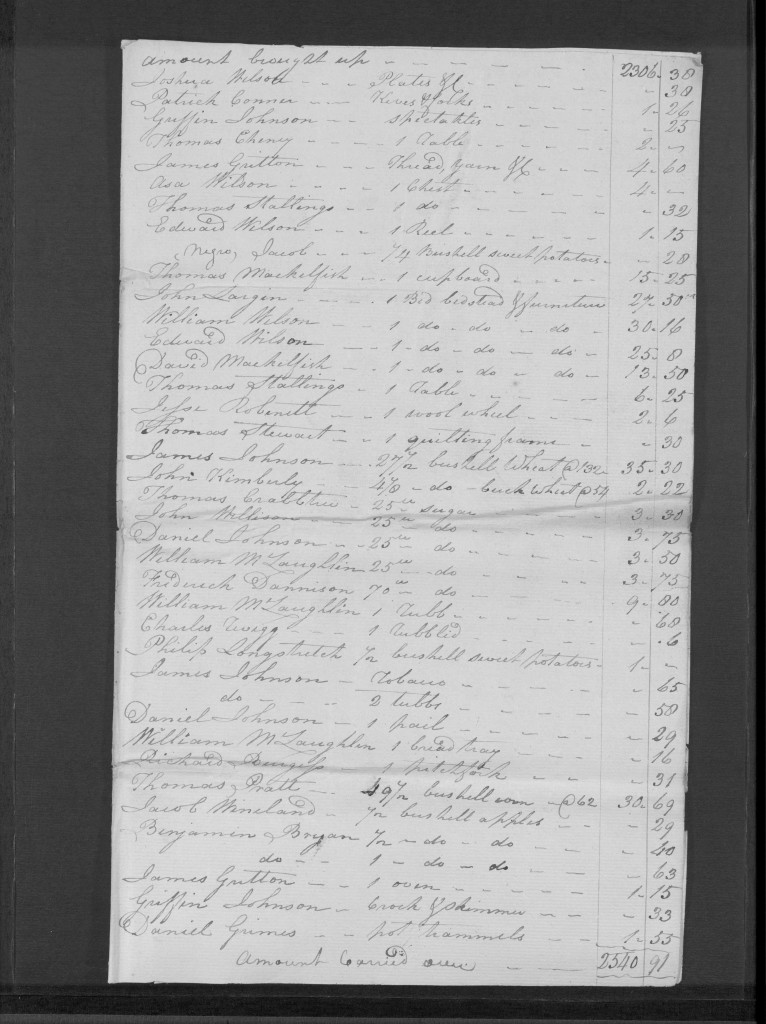 amount brought up - - - - 2306 - 38
Joshua Wilson - - - Plates &c - - - - - 38
Patrick Conner - - - Knives & forks - - - 1 - 26
Griffin Johnson - - - spectakles - - - - 25
Thomas Cheney - - - 1 Table - - - - 2 - -
James Gutton - - - Thread, yarn &c - - - 4 - 60
Asa Wilson - - - - 1 Chest - - - - 4 - -
Thomas Stallings - - 1 do - - - - - - 32
Edward Wilson - - - 1 Reel - - - - 1 - 15
Negro, Jacob - - - 1/4 Bushell sweet potatoes - - 28
Thomas Mackelfish - - 1 cupboard - - - - 15 - 25
John Largin - - - - 1 Bed bedstead & furneture 27 - 50
William Wilson - - - 1 do - do - do - 30 - 16
Edward Wilson - - 1 - do - do - do - 25 - 8
David Mackelfish - - 1 - do - do - do - 13 - 50
Thomas Stallings - 1 Table - - - - 6 - 25
Jesse Robinett - - 1 wool wheel - - - - 2 - 6
Thomas Stewart - - 1 quilting frame - - - 30
James Johnson - - - 27 1/2 bushell Wheat @ 132 - 35 - 30
John Kimberly - - 4 1/8 - do - buck wheat @ 54 2 - 22
Thomas Crabtree - 25 sugar - - - 3 - 30
John Willison - - 25 do - - - 3 - 75
Daniel Johnson - - 25 - do - - - - 3 - 50
William McLaughlin 25 - do - - - - 3 - 75
Frederick Dannison 70 - do - - - - 9 - 80
William McLaughlin 1 Tubb - - - - - 68
Charles Twigg - - - 1 Tubblid - - - - - 6
Philip Longstreth 1/2 bushell sweet potatoes - 1 - -
James Johnson - Tobacco - - - - - 65
do - - - 2 tubbs - - - - - 58
Daniel Johnson - 1 pail - - - - - 29
William McLaughlin 1 bread tray - - - - 16
Richard Burgess - - 1 pitchfork - - - 31
Thomas Pratt - - 49 1/2 bushell corn - @ 62 30 - 69
Jacob Wineland - 1/2 bushell apples - - - 29
Benjamin Bryan 1/2 - do - do - - - 40
do - - 1 - do - do - - - 63
James Gutton - - 1 oven - - - - - 1 - 15
Griffin Johnson - Crock & skimmer - - - 33
Daniel Grimes - - pot trammels - - - 1 - 55
Amount Carried over - - - 2540 91